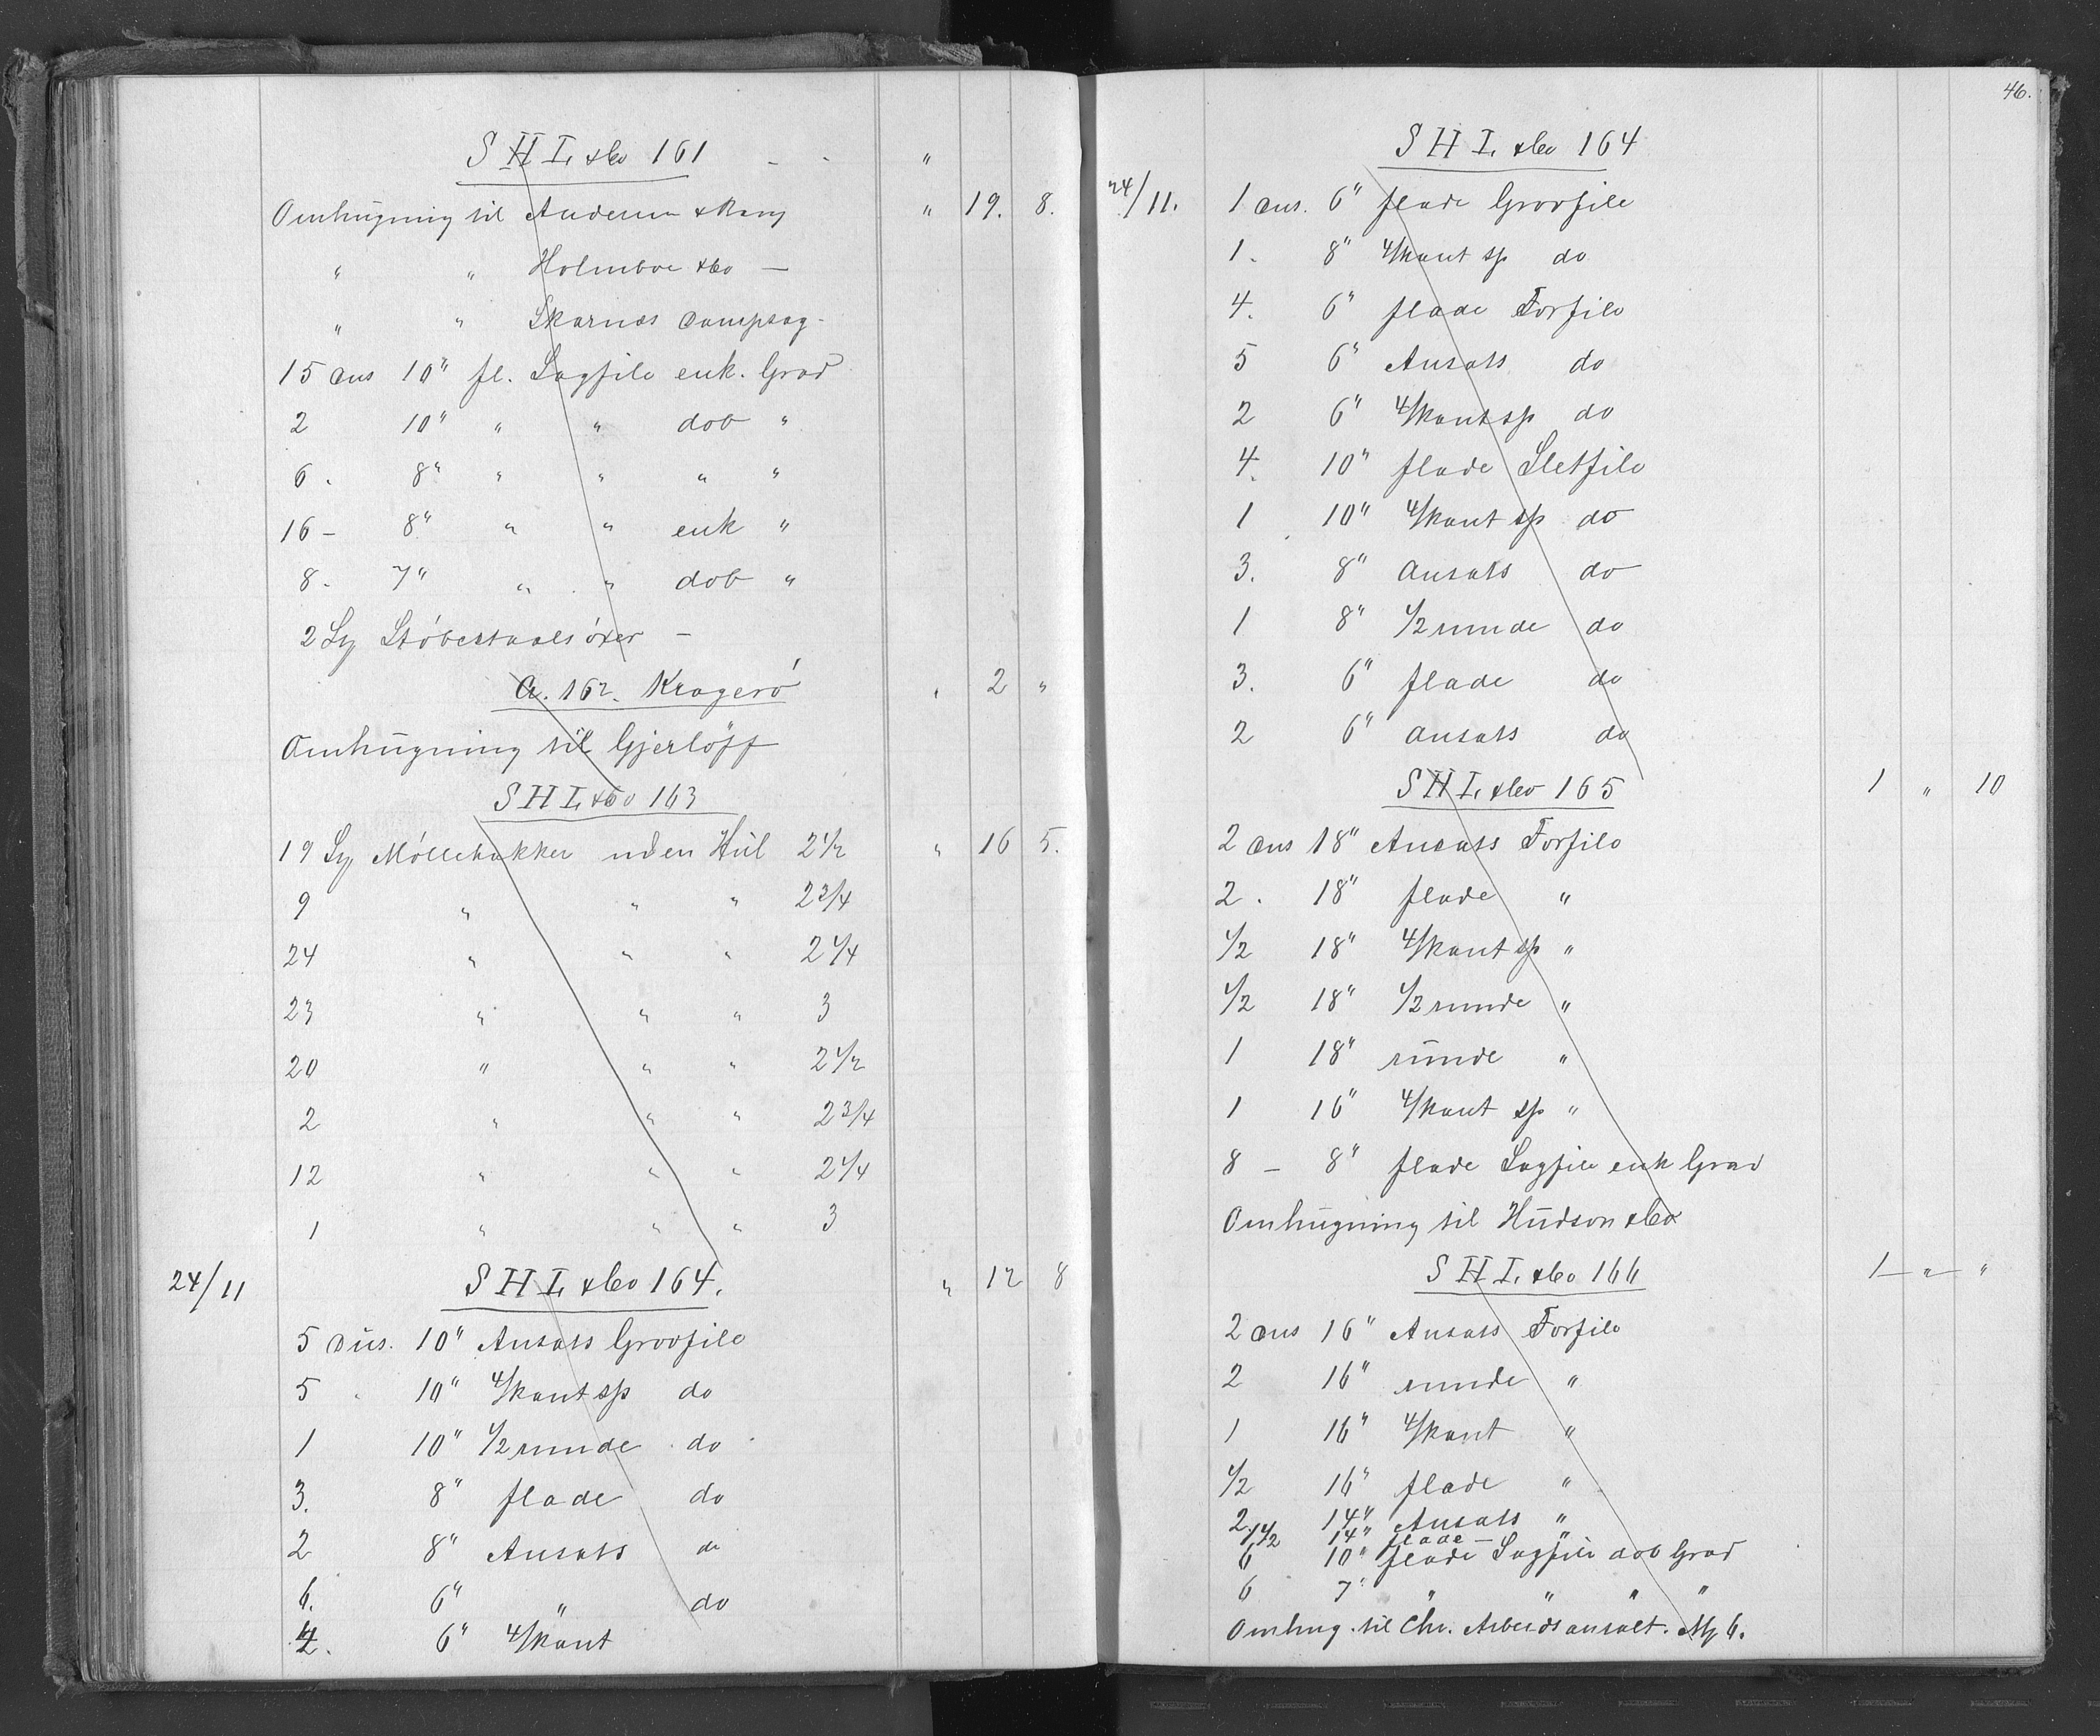 S H L & Co 161 - - "
Omhugning til Andersen & Bang " 19. 8.
" " Holmboe & Co —
" " Skarnes Dampsag -
15 Dus 10" fl. Sagfile enk. Grad
2 10" " " dob "
6 . 8" " " " "
16 - 8" " " enk "
8 - 7" " " dob "
2 Støbestaalsöxer -
A. 162. Kragerö " 2 "
Omhugning til Gjerlöff
S H L & Co 163
19 Møllehakker uden Hul 2 1/2 " 16 5.
9 " " " 2 3/4
24 " " " 2 1/4
23 " " " 3
20 " " " 2 1/2
2 " " " 2 3/4
12 " " " 2 1/4
1 " " " 3
24/11 S H L & Co 164. " 12 8
5 Dus. 10" Ansats Grovfile
5 " 10" 4/kant sp do
1 10" 1/2 runde do
3. 8" flade do
2 8" Ansats do
6. 6" " do
4. 6" 4/kant
46.
S H L & Co 164
24/11. 1 Dus. 6" flade Grovfile
1 - 8" 4/kant sp do
4. 6" flade Forfile
5 6" Ansats do
2 6" 4/kant sp do
4. 10" flade Sletfile
1 10" 4/kant sp do
3. 8" Ansats do
1 8" 1/2 runde do
3. 6" flade do
2 6" Ansats do
S H L & Co 165 1 " 10
2 Dus 18" Ansats Forfile
2 . 18" flade "
1/2 18" 4/kant sp "
1/2 18" 1/2 runde "
1 18" runde "
1 16" 4/kant sp "
8 — 8" flade Sagfile enk Grad
Omhugning til Hudson & Co
S H L & Co 166 1 — " — "
2 Dus 16" Ansats Forfile
2 16" runde "
1 16" 4/kant "
1/2 16" flade "
2 14" Ansats "
1 1/2 14" flade — "
6 10" flade Sagfile dob Grad
6 7" " " " "
Omhug. til Chr. Arbeidsanstalt. 6.